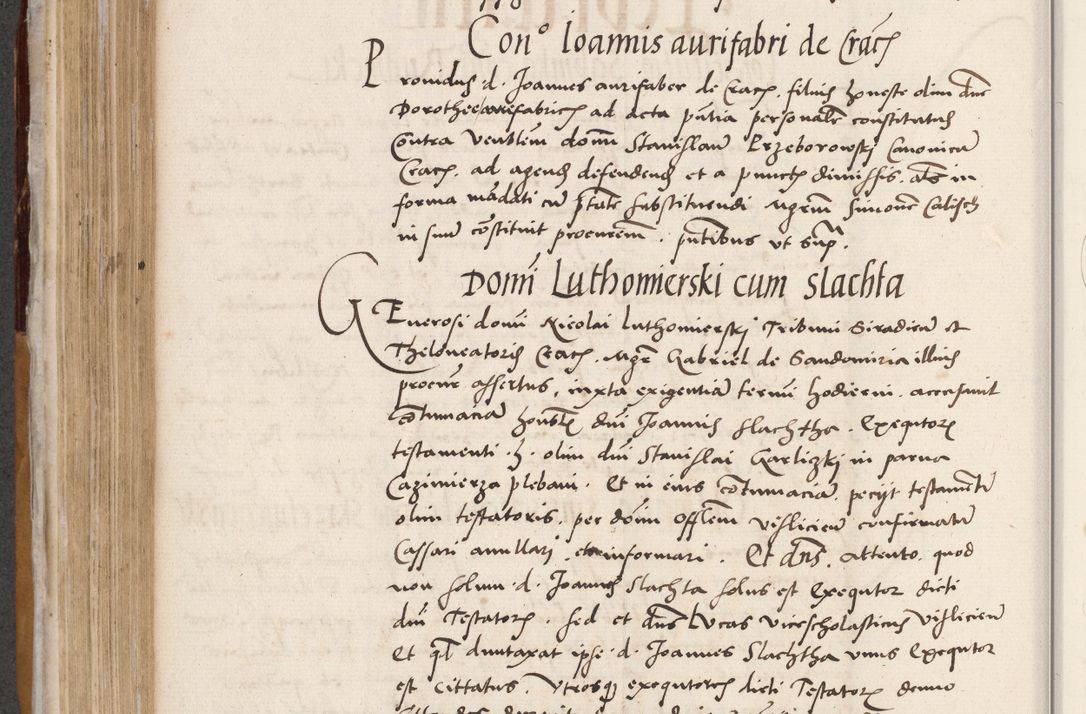 Con° Ioannis aurifabri de Crac̃
Prouidus d. Joannes aurifaber de Crac̃. filius honeste olim dnẽ
Dorothee aurifabric̃ ad acta pñtia personalr̃ constitutus
Contra Venblem domñ Stanislaũ Przeborowskj Canonicũ
Crac̃. ad agend̃ defendend̃ et a punct̃ dimissis. als̃ in
forma mãdati cũ ptãte substituendi Mgrm̃ Simonẽ Calisch
in suũ cõstituit procurem̃. pñtibus vt sup̃.
Domĩ Luthomierski cum Slachta
GEnerosi domĩ Nicolai luthomierskj Tribuni Siradieñ et
Theloneatoris Crac̃. Mgr̃ Gabriel de Sandomiria illius
procur̃ assertus, iuxta exigentiã termĩ hodierni. accusauit
cõtumaciã honbĩl dnĩ Joannis Slachtha. Exequtor̃
testamenti. h̃. olim dnĩ Stanislai Garlizkj in parua
Cazimierza plebani. Et in eius cõtumaciã. peciit testamẽti
olim testatoris. per dõm Offlem̃ vislicieñ confirmatũ
Cassari annullari et informari. Et dñs. attento. quod
non solum. d. Joannes Slachta solus est Exequtor dicti
dnĩ Testator̃. sed et dñs Lucas vicescholasticus vislicieñ
Et ql̃ duntaxat ipse. d. Joannes Slachtha vnus Exequtor
est Cittatus. Vtrosq̃ exequtores dicti Testator̃ denuo